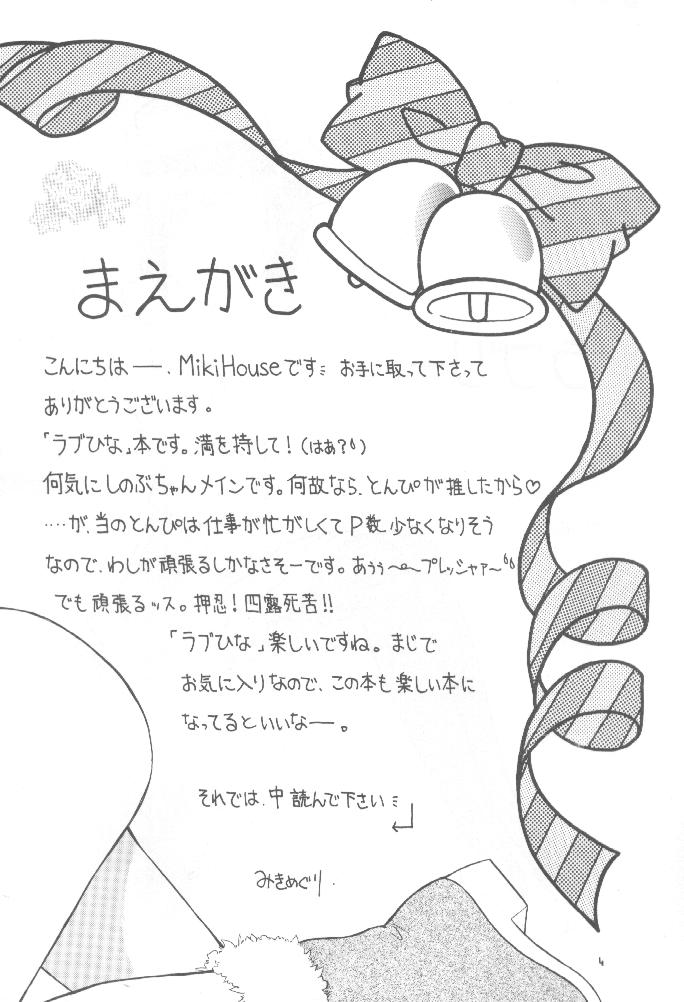 まえがき
こんにちは──、MikiHouseです お手に取って下さって
ありがとうございます。
「ラブひな」本です。満を持して！（はあ？）
何気にしのぶちゃんメインです。何故なら、とんぴが推したから♡
‥‥が、当のとんぴは仕事が忙がしくてP数少なくなりそう
なので、わしが頑張るしかなさそーです。あぅぅ〜〜プレッシャァ〜
でも頑張るッス。押忍！四露死苦！！
「ラブひな」楽しいですね。まじで
お気に入りなので、この本も楽しい本に
なってるといいなー。
それでは、中読んで下さい
みきめぐり．
4